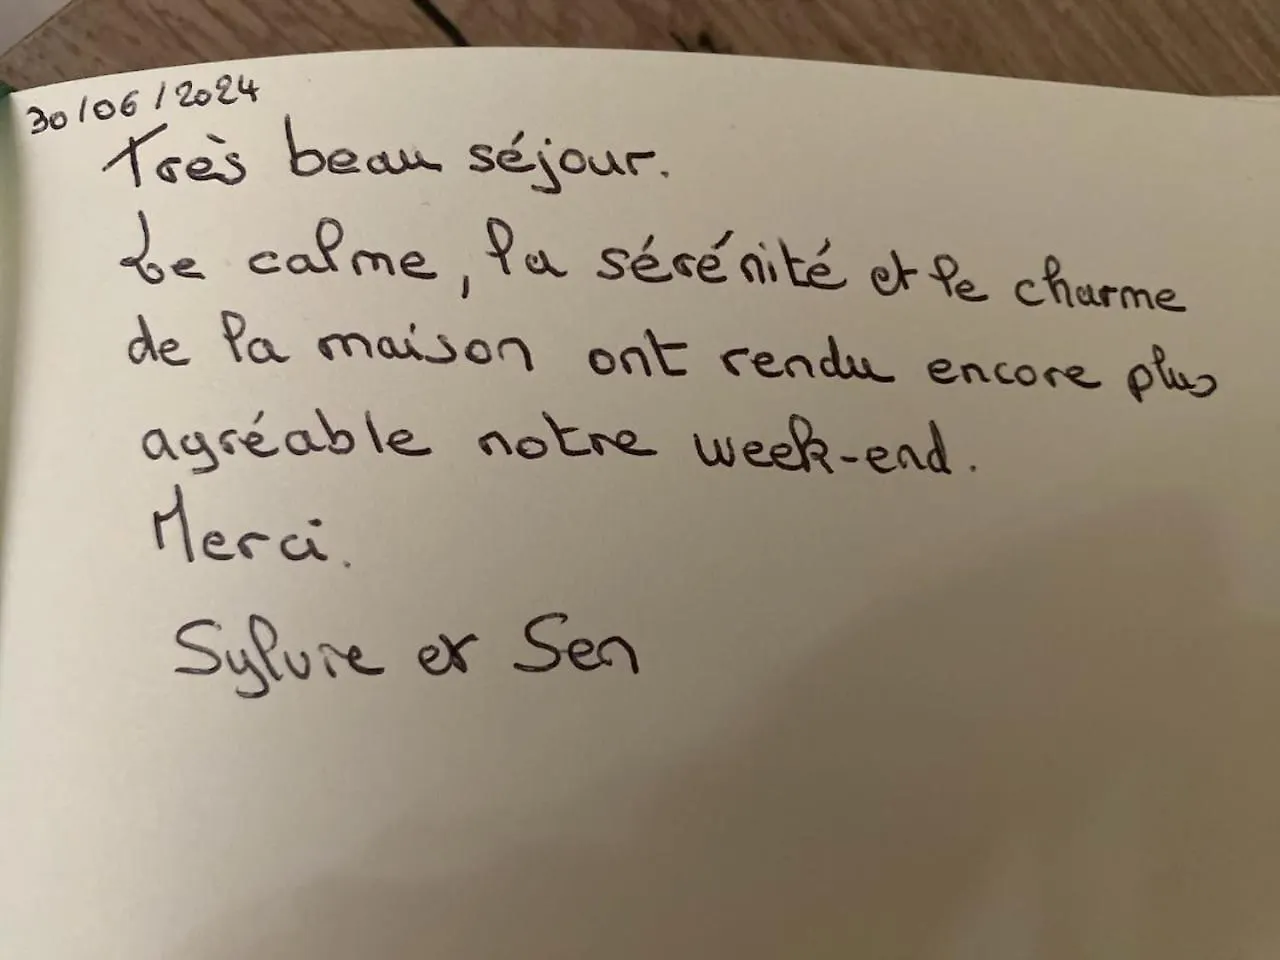 30/06/2024
Très beau séjour.
Le calme, la sérénité et le charme
de la maison ont rendu encore plus
agréable notre week-end.
Merci.
Sylvie et Sen